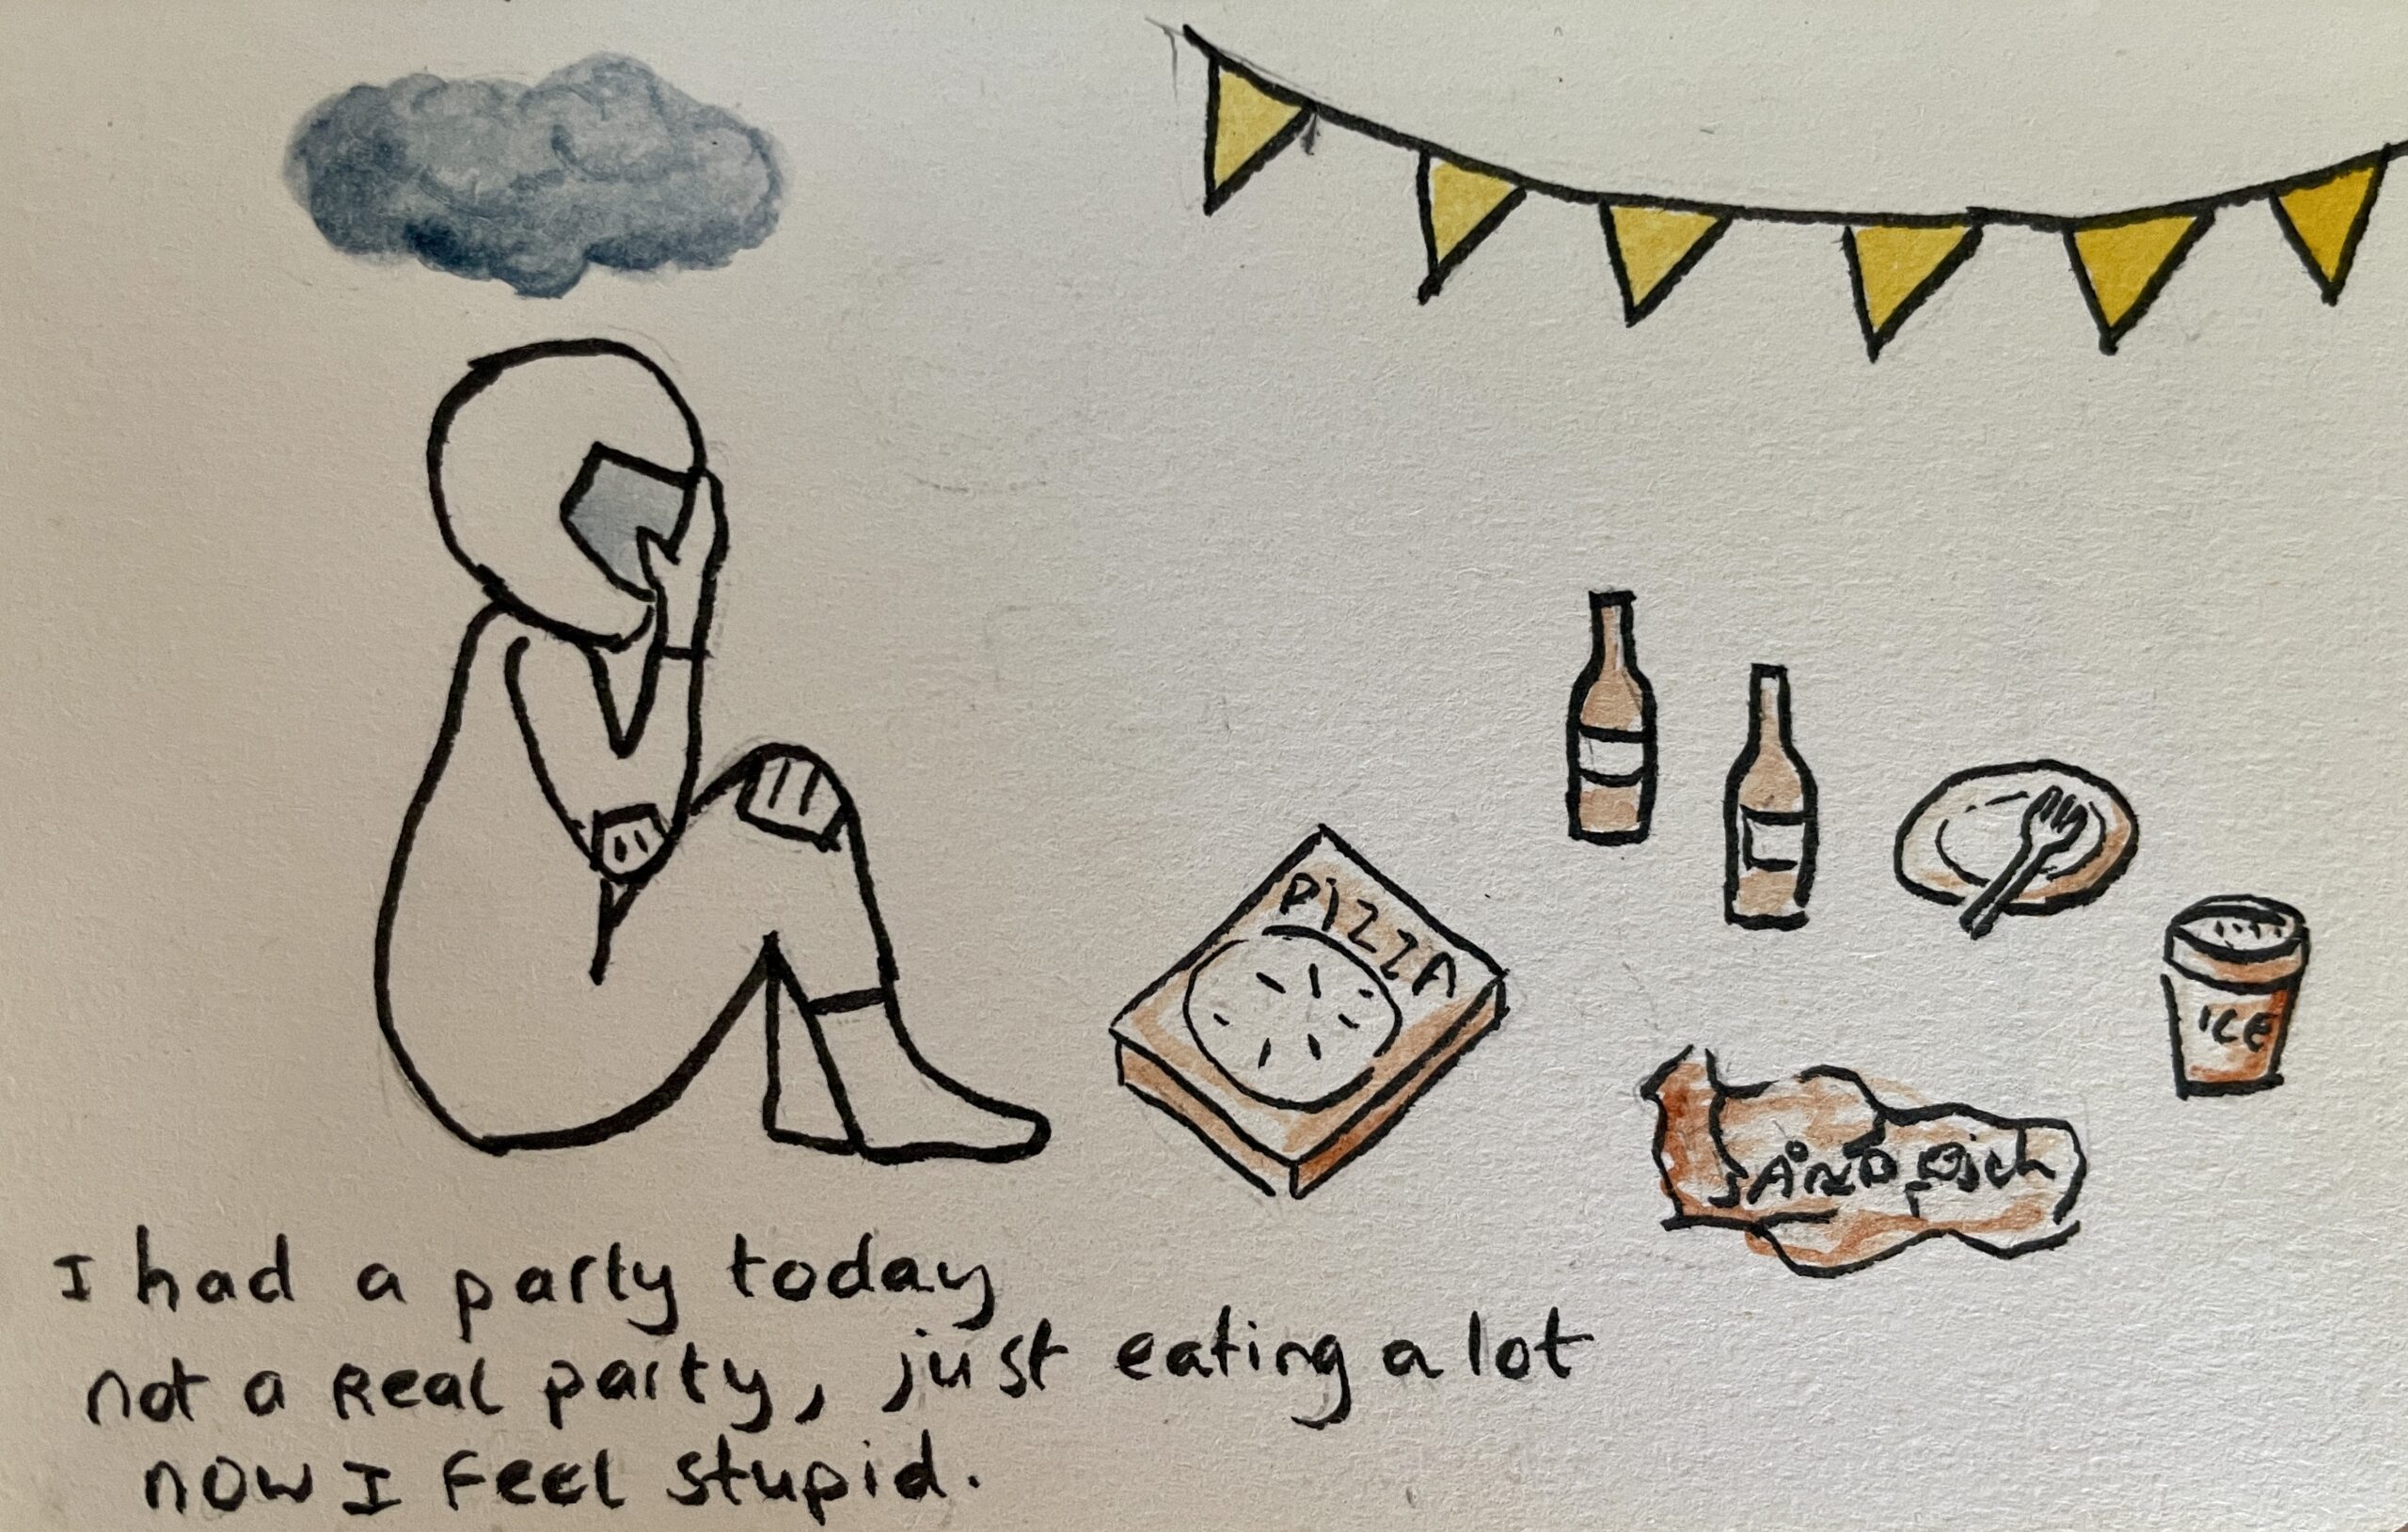 PIZZA
ICE
SANDWich
I had a party today
not a Real party, just eating a lot
now I feel stupid.